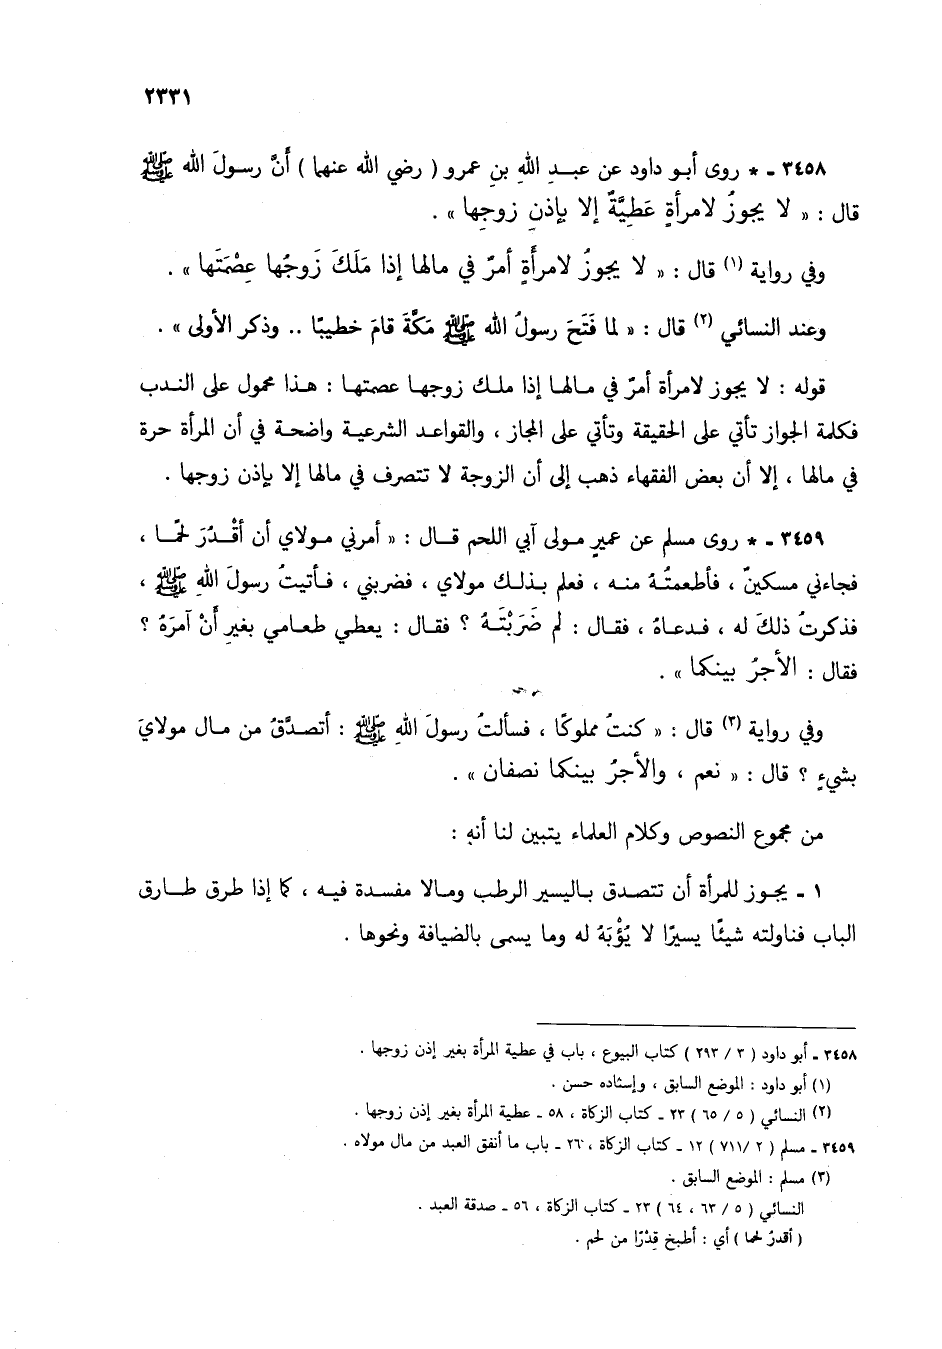 ٢٣٣١
٣٤٥٨ ـ * روى أبو داود عن عبدِ اللهِ بنِ عمرو ( رضي الله عنهما ) أَنَّ رسولَ الله ﷺ
قال : « لا يجوزُ لامرأةٍ عَطِيَّةٌ إلا بإذنِ زوجِها » .
وفي رواية (١) قال : « لا يجوزُ لامرأَةٍ أمرٌ في مالها إذا مَلَكَ زَوجُها عِصْمَتَها » .
وعند النسائي (٢) قال : « لما فَتَحَ رسولُ الله ﷺ مَكَّةَ قامَ خطيبًا .. وذكر الأولى » .
قوله : لا يجوز لامرأة أمرٌ في مالها إذا ملك زوجها عصمتها : هذا محمول على الندب
فكلمة الجواز تأتي على الحقيقة وتأتي على المجاز ، والقواعد الشرعية واضحة في أن المرأة حرة
في مالها ، إلا أن بعض الفقهاء ذهب إلى أن الزوجة لا تتصرف في مالها إلا بإذن زوجها .
٣٤٥٩ ـ * روى مسلم عن عميرٍ مولى آبي اللحم قال : « أمرني مولاي أن أقْدُرَ لحمًا ،
فجاءني مسكينٌ ، فأطعمتُهُ منه ، فعلم بذلك مولاي ، فضربني ، فأتيتُ رسولَ اللهِ ﷺ ،
فذكرتُ ذلكَ له ، فدعاهُ ، فقال : لم ضَرَبْتَهُ ؟ فقال : يعطي طعامي بغيرِ أَنْ آمرَهُ ؟
فقال : الأجرُ بينكما » .
وفي رواية (٣) قال : « كنتُ مملوكًا ، فسألتُ رسولَ اللهِ ﷺ : أتصدَّقُ من مال مولايَ
بشيءٍ ؟ قال : « نعم ، والأجرُ بينكما نصفان » .
من مجموع النصوص وكلام العلماء يتبين لنا أنه :
١ ـ يجوز للمرأة أن تتصدق باليسير الرطب ومالا مفسدة فيه ، كما إذا طرق طارق
الباب فناولته شيئًا يسيرًا لا يُؤْبَهُ له وما يسمى بالضيافة ونحوها .
٣٤٥٨ ـ أبو داود ( ٣ / ٢٩٣ ) كتاب البيوع ، باب في عطية المرأة بغير إذن زوجها .
(١) أبو داود : الموضع السابق ، وإسناده حسن .
(٢) النسائي ( ٥ / ٦٥ ) ٢٣ ـ كتاب الزكاة ، ٥٨ ـ عطية المرأة بغير إذن زوجها .
٣٤٥٩ ـ مسلم ( ٢ /٧١١ ) ١٢ ـ كتاب الزكاة ، ٢٦ ـ باب ما أنفق العبد من مال مولاه .
(٣) مسلم : الموضع السابق .
النسائي ( ٥ / ٦٣ ، ٦٤ ) ٢٣ ـ كتاب الزكاة ، ٥٦ ـ صدقة العبد .
( أقدرُ لحما ) أي : أطبخ قِدْرًا من لحم .